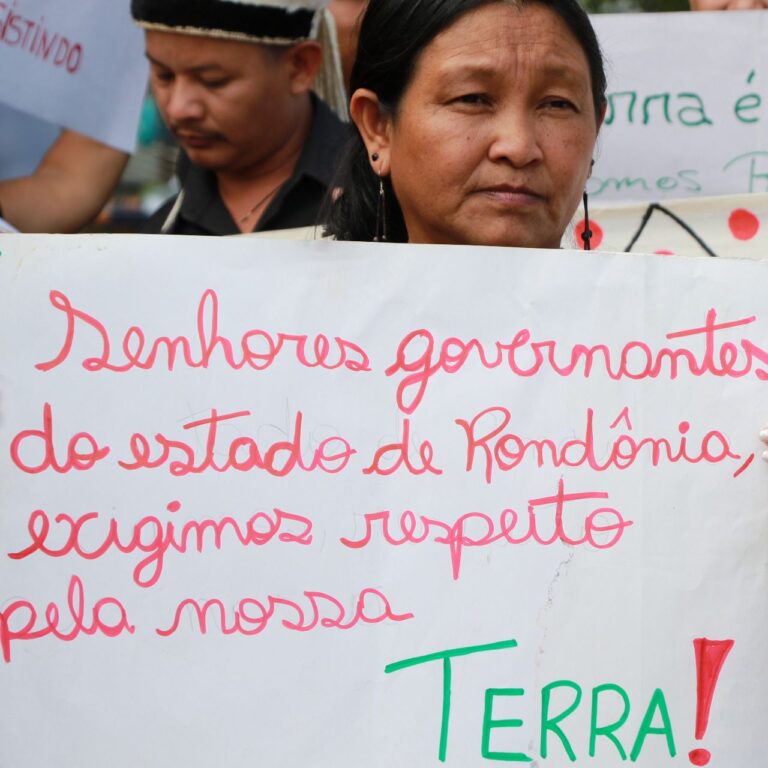 sistindo
rra é
omos
Senhores governantes
do estado de Rondônia,
exigimos respeito
pela nossa
TERRA!